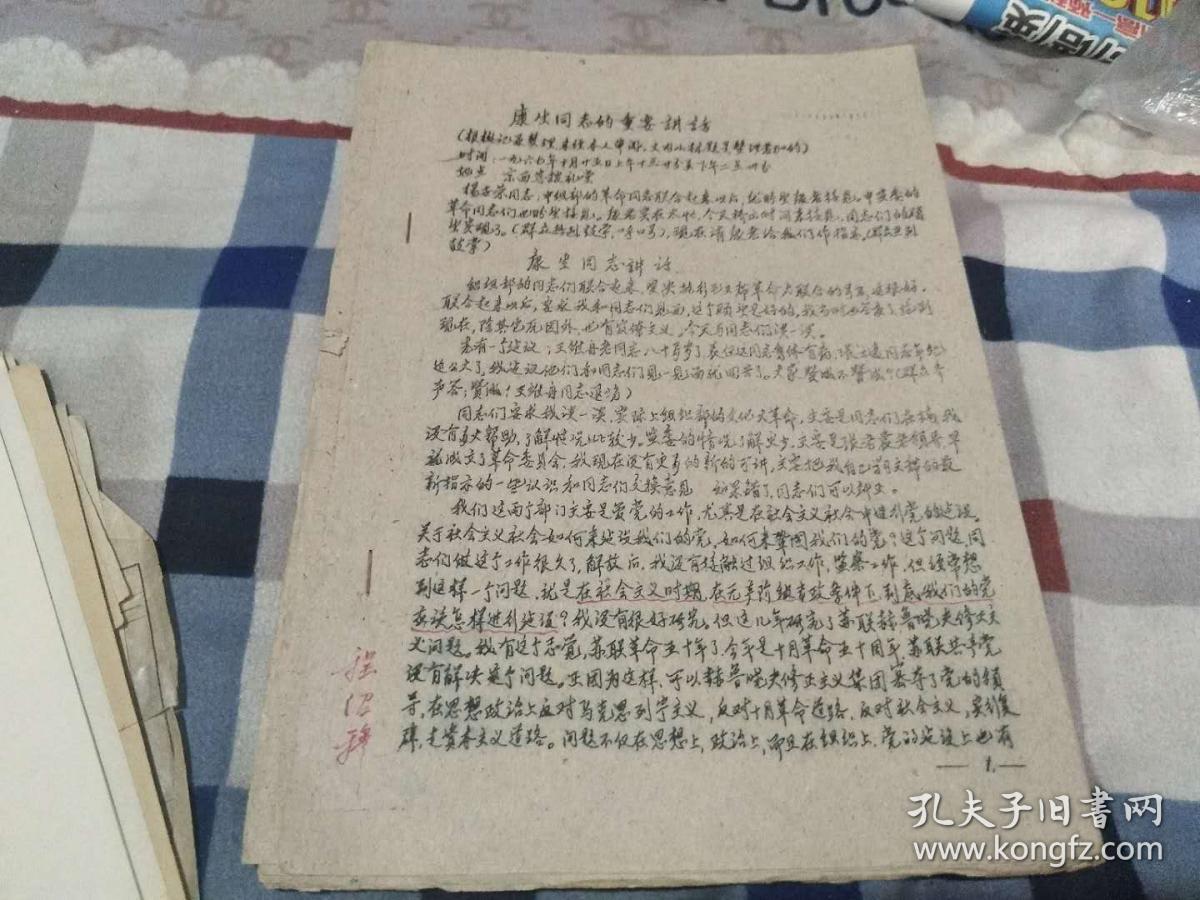 康生同志的重要讲话
(根据记录整理,未经本人审阅,文内小标题是整理者加的)
时间:一九六七年十月十五日上午十点廿分至下午二点廿分
地点 京西宾馆礼堂
杨志荣同志:中组部的革命同志联合起来以后,
革命同志们也盼望接见。康老实在太忙,今天挤出时间来接见,同志们的
实现了。(群众热烈鼓掌,呼口号),现在请康老给我们作指示。(群众热烈
鼓掌)
康生同志讲话
组织部的同志们联合起来,坚决执行
联合起来以后,要求我和同志们见面,这个愿望是好的,
现在,除其它原因外,也有官僚主义,今天与同志们谈一谈。
我有一个建议:王维舟老同志八十多岁了,
这么大了,我建议他们和同志们见一见面就回去了。大家赞成不赞成?(群众齐
声答:赞成!王维舟同志退场)
同志们要求我谈一谈,实际上组织部的文化大革命,主要是同志们在搞,我
没有多大帮助,了解情况比较少。监委的情况了解更少,
就成立了革命委员会,我现在没有更多的新的可讲,主要把我自己学习主席的最
新指示的一些认识和同志们交换意见 如果错了,同志们可以纠正。
我们这两个部门主要是管党的工作,尤其是在社会主义社会中进行党的建设。
关于社会主义社会如何来建设我们的党,如何来巩固我们的党?这个问题,同
志们做这个工作很久了,解放后,我没有接触过组织工作,监察工作,但经常想
到这样一个问题,就是在社会主义时期,在无产阶级专政条件下,到底我们的党
应该怎样进行建设?我没有很好研究,但这几年研究了苏联赫鲁晓夫修正主
义问题。我有这个感觉,苏联革命五十年了,今年是十月革命五十周年,苏联共产党
没有解决这个问题。正因为这样,可以赫鲁晓夫修正主义集团窃夺了党的领
导,在思想政治上反对马克思列宁主义,反对十月革命道路,反对社会主义,实行复
辟,走资本主义道路。问题不仅在思想上,政治上,而且在组织上,党的建设上也有
— 1. —
孔夫子旧书网
www.kongfz.com